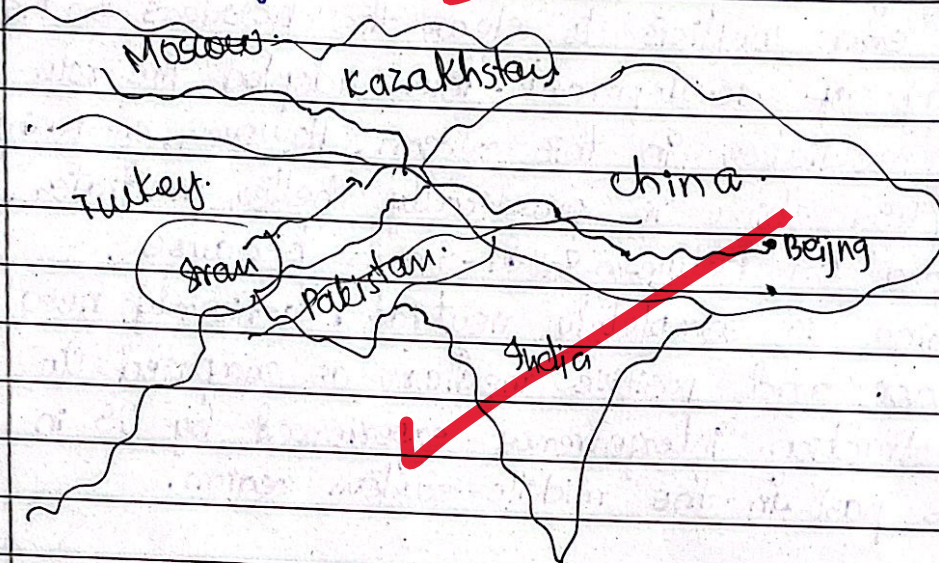 Moscow.
Kazakhstan
Turkey.
China.
Iran
Pakistan.
Beijng
India